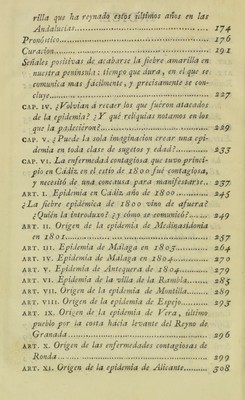 rilla que ha reynado estos últimos años en las
Andalucías........ 174
Pronóstico........ 176
Curacion........ 191
Señales positivas de acabarse la fiebre amarilla en
nuestra península: tiempo que dura, en el que se
comunica mas fácilmente, y precisamente se con-
cluye........ 227
CAP. IV. ¿Volvian á recaer los que fueron atacados
de la epidemia? ¿Y qué reliquias notamos en los
que la padecieron?........ 229
CAP. V. ¿Puede la sola imaginacion crear una epi-
demia en toda clase de sugetos y edad?........ 233
CAP. VI. La enfermedad contagiosa que tuvo princi-
pio en Cádiz en el estío de 1800 fué contagiosa,
y necesitó de una concausa para manifestarse. 237
ART. I. Epidemia en Cadiz año de 1800........ 245
¿La fiebre epidémica de 1800 vino de afuera?
¿Quién la introduxo? ¿y cómo se comunicó?.... 249
ART. II. Orígen de la epidemia de Medinasidonia
en 1801........ 257
ART. III. Epidemia de Málaga en 1803........ 264
ART. IV. Epidemia de Málaga en 1804........ 270
ART. V. Epidemia de Antequera de 1804........ 279
ART. VI. Epidemia de la villa de la Rambla...... 285
ART. VII. Orígen de la epidemia de Montilla...... 289
ART. VIII. Orígen de la epidemia de Espejo...... 293
ART. IX. Orígen de la epidemia de Vera, último
pueblo por la costa hácia levante del Reyno de
Granada........ 296
ART. X. Orígen de las enfermedades contagiosas de
Ronda........ 299
ART. XI. Orígen de la epidemia de Alicante...... 308